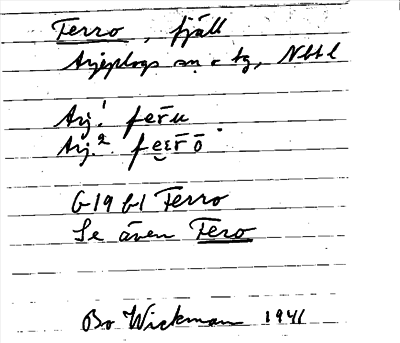 Ferro, fjäll
Arjeplogs sn o tg, Nbtl
Arj.¹ fer̄u
Arj.² fe͜ɛr̄ō.
G19 b1 Ferro
Se även Fero
Bo Wickman 1941